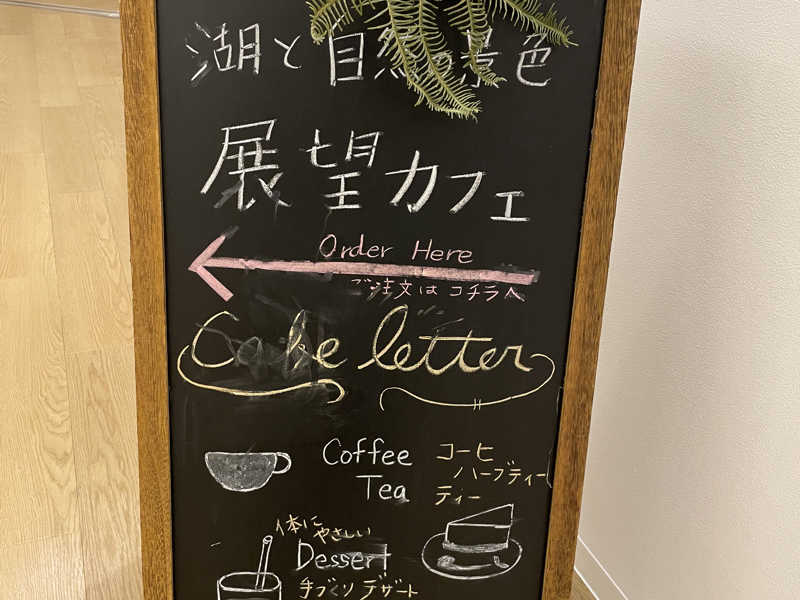 湖と自然の景色
展望カフェ
Order Here
ご注文は コチラへ
Cake letter
Coffee コーヒ
ハーブティー
Tea ティー
体にやさしい
Dessert
手づくりデザート